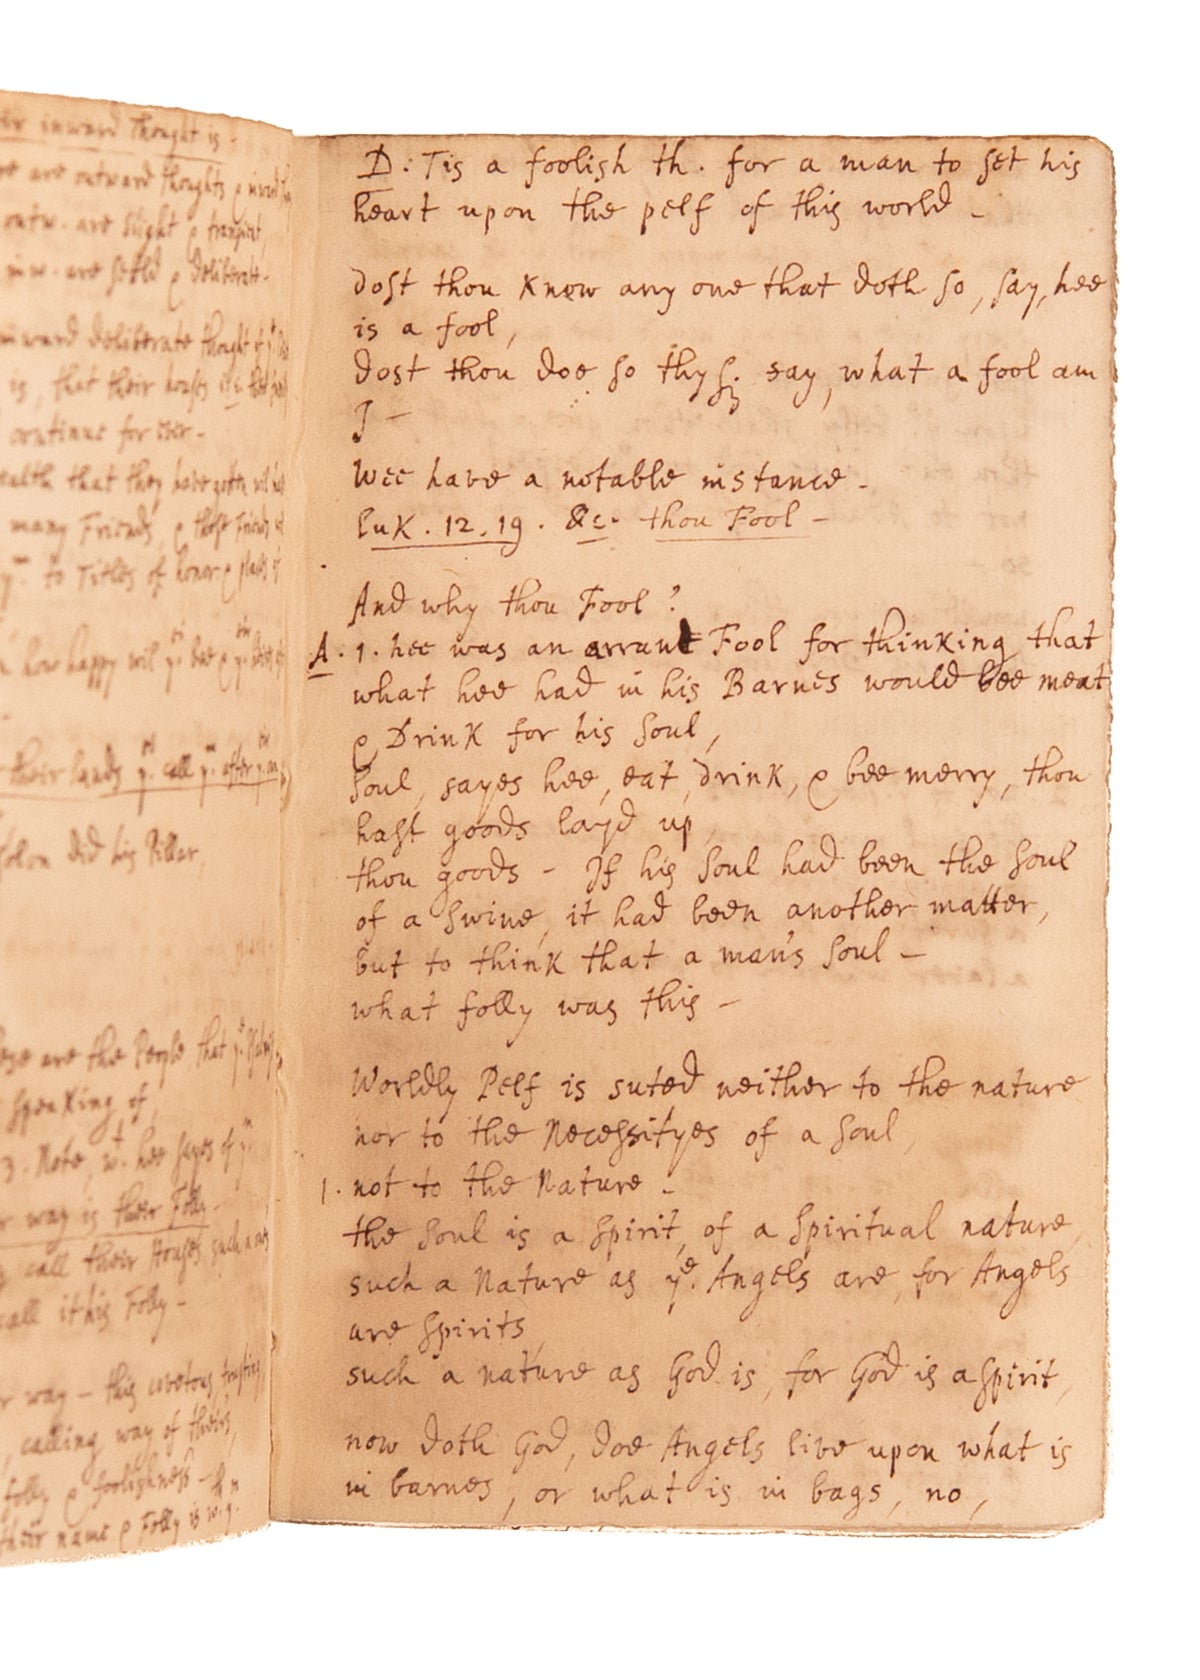 inward thought is -
are outward thoughts & inward
outw. are slight & transient,
inw. are setld & deliberate -
inward deliberate thought of
is, that their houses
continue for ever -
wealth that they have gotten wil
many Friends, & those Friends
to Titles of honor & places of
how happy wil
their lands yy. call ym. after
did his Pillar,
these are the People that ye.
speaking of,
3. Note, wt. hee sayes of ym.
way is their Folly -
call their Houses,
call it his Folly -
way - this covetous, trusting,
calling way of theirs,
folly & foolishness -
their name & Folly is w.
D: Tis a foolish th. for a man to set his
heart upon the pelf of this world -
dost thou know any one that doth so, say, hee
is a fool,
dost thou doe so thys. say, what a fool am
I -
Wee have a notable instance -
Luk. 12. 19. &c. thou Fool -
And why thou Fool?
A. 1. hee was an arrant Fool for thinking that
what hee had in his Barnes would bee meat
& Drink for his Soul,
Soul, sayes hee, eat, drink, & bee merry, thou
hast goods layd up,
thou goods - If his Soul had been the Soul
of a Swine, it had been another matter,
but to think that a man's Soul -
what folly was this -
Worldly Pelf is suted neither to the nature
nor to the Necessityes of a Soul,
1. not to the Nature -
the Soul is a Spirit, of a Spiritual nature,
such a Nature as ye. Angels are, for Angels
are Spirits,
such a nature as God is, for God is a Spirit,
now doth God, doe Angels live upon what is
in barnes, or what is in bags, no,